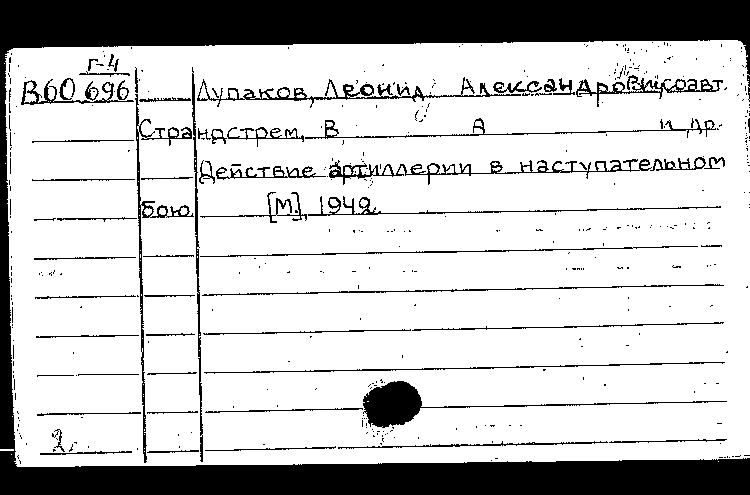 Г-4
В60 696
Лупаков, Леонид Александрович, соавт.
Страндстрем, В А и др.
Действие артиллерии в наступательном
бою. [М.], 1942.
2.